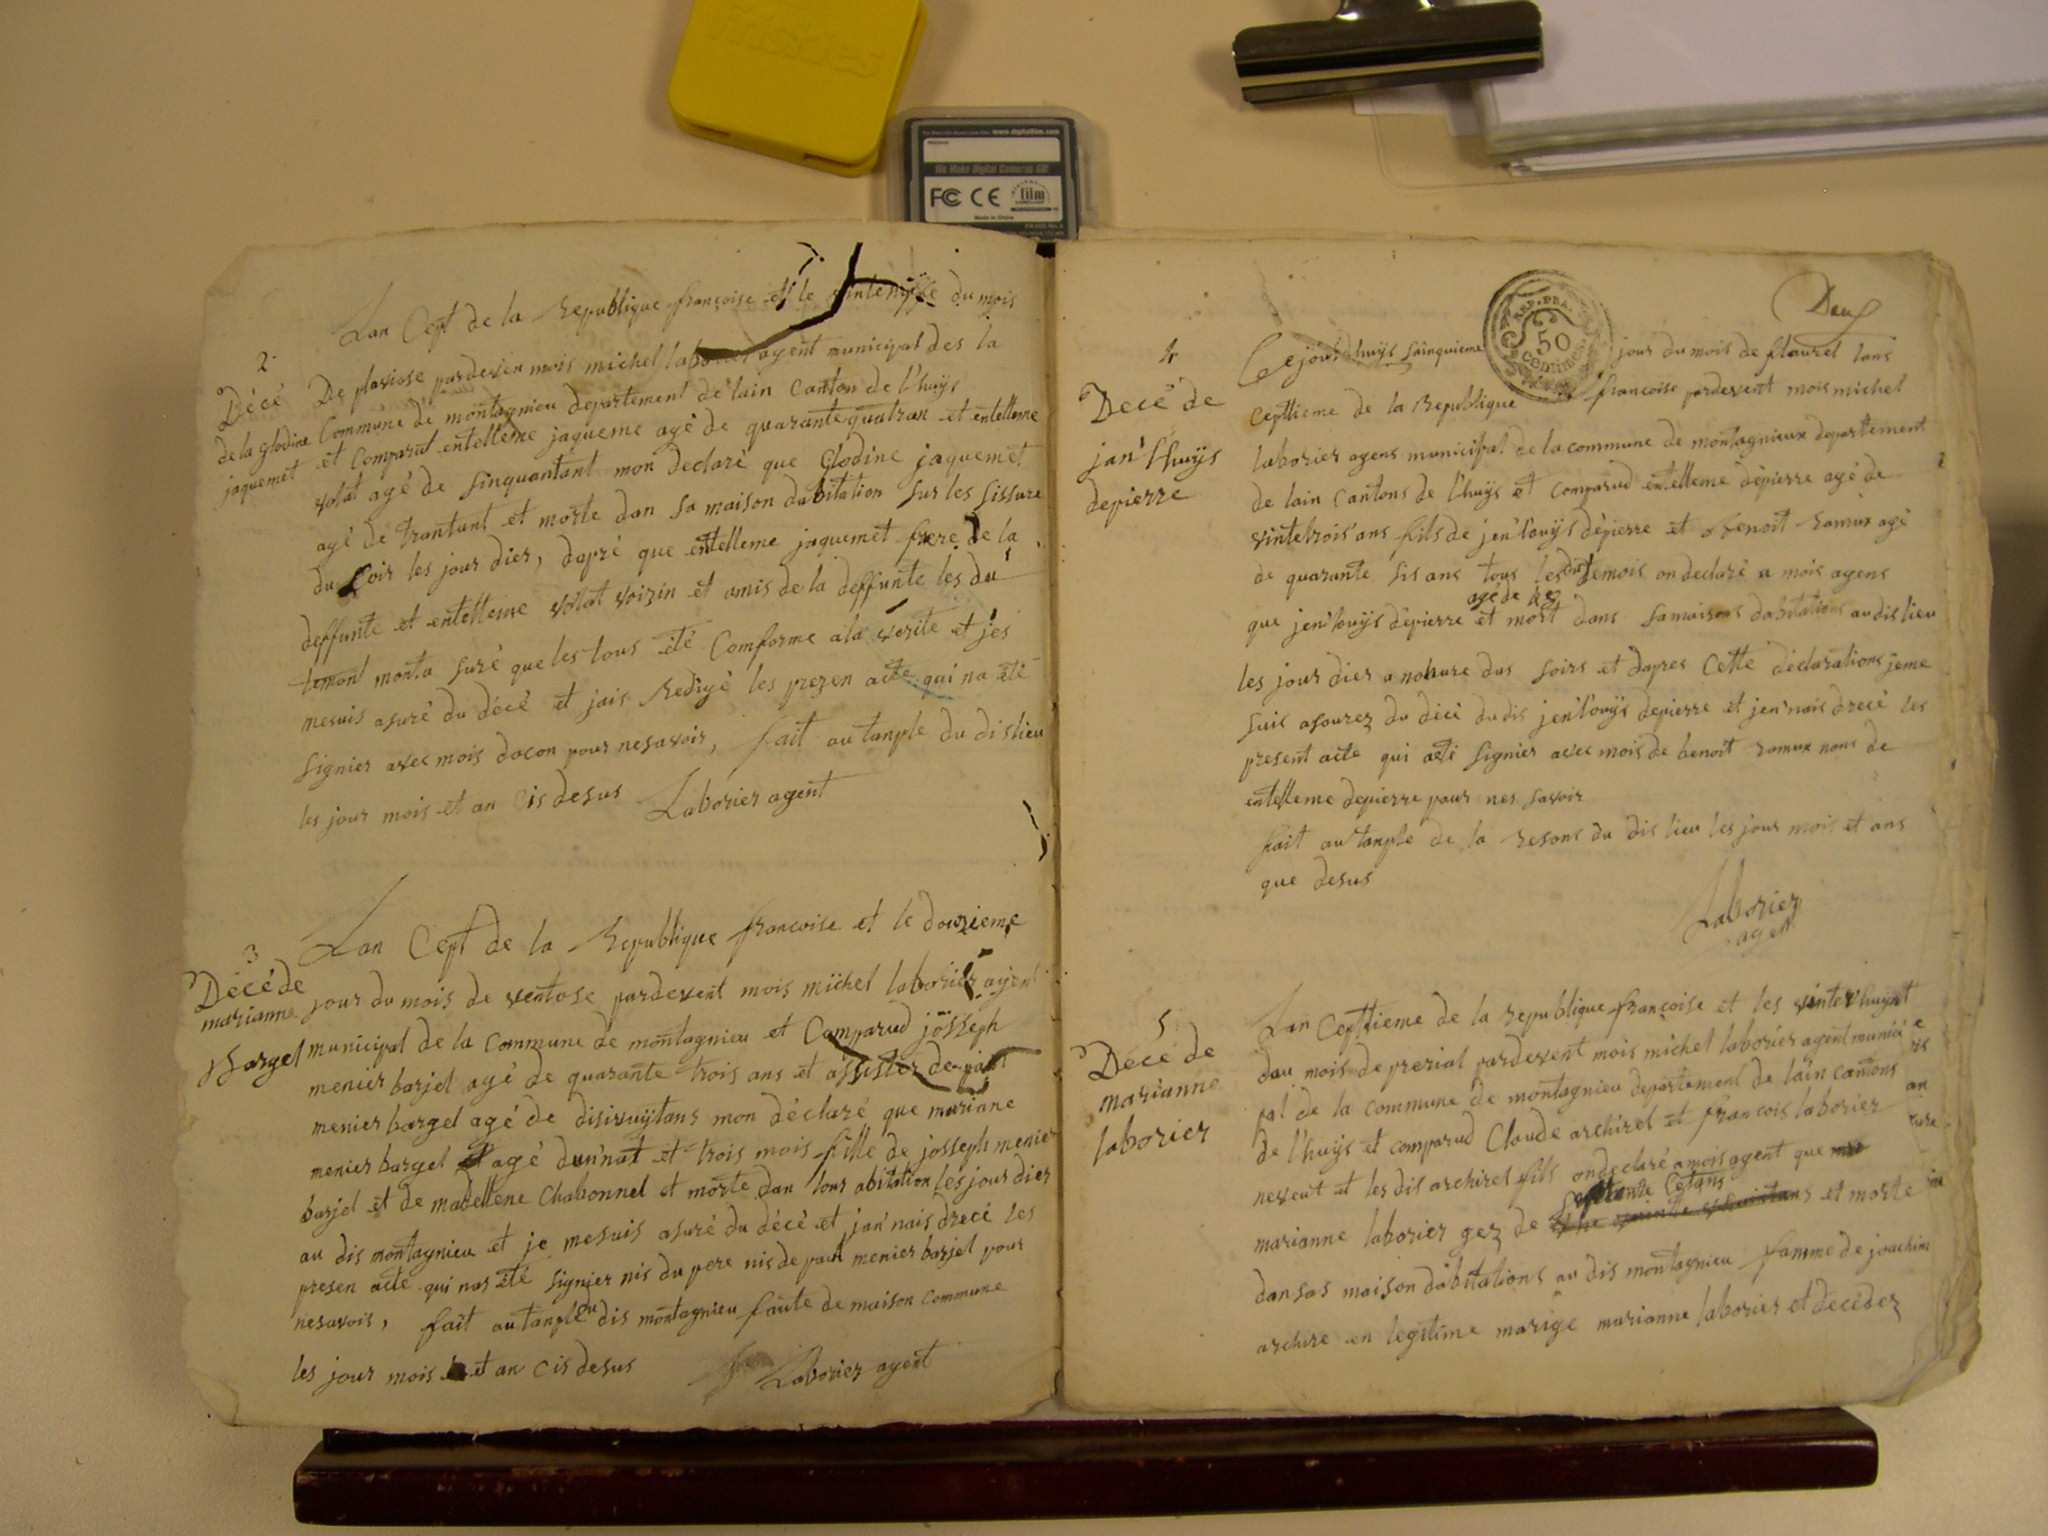 www.digitalfilm.com
We Make Digital Cameras GO!
FC CE film
Made in China
2
Décé
de la Glodine
jaquemet
Lan Cept de la Republique françoise et le du mois
De plaviose pardeven mois michel laborier agent municipal des la
Commune de montagnieu departement de lain Canton de l'huÿs
et Comparut entelleme jaqueme agé de quarante quatran et entelleme
volat agé de sinquantant mon declaré que Glodine jaquemet
agé de trantant et morte dan sa maison dabitation sur les sissure
du soir les jour dier, dapré que entelleme jaquemet frere de la
deffunte et entelleme volat voizin et amis de la deffunte les du
temont monta suré que les tous été Comforme a la verite et jes
mesuis asuré du décé et jais Redigé les prezen acte qui na été
signier avec mois docon pour nesavoir, fait au tanple du dis lieu
les jour mois et an cis desus Laborier agent
3
Décé de
marianne
Bargel
Lan Cept de la Republique françoise et le douzieme
jour du mois de ventose pardevent mois michel laborier agent
municipal de la Commune de montagnieu et Comparud josseph
menier barjel agé de quarante trois ans et assister de pant
menier bargel agé de disivuÿtans mon déclaré que mariane
menier bargel agé dun'nat et trois mois fille de josseph menier
barjel et de madellene Chabonnel et morte dan lour abitation les jour dier
au dis montagnieu et je mesuis asuré du décé et jan'nais drecé les
presen acte qui nas été signier nis du pere nis de pant menier barjel pour
nesavois, fait au tanple du dis montagnieu faute de maison commune
les jour mois et an cis desus Laborier agent
Deux
REP. FRA.
50
Centimes
4
Décé de
jan' l'huÿs
depierre
Cejourdhuÿs sainquieme jour du mois de flaurel lans
cepttieme de la Republique francoise pardevent mois michel
laborier agens municipal de la commune de montagnieux departement
de lain cantons de l'huÿs et comparud entelleme dépierre agé de
vintetrois ans fils de jen'louÿs dépierre et benoit ramux agé
de quarante sis ans tous les dus temois on declaré a mois agens
que jen'louÿs depierre agé de et mort dans samaisons dabitations au dis lieu
les jour dier a nohure dus soirs et dapres Cette déclarations jeme
suis asourez du décé du dis jen'louÿs depierre et jen'nais drecé les
present acte qui aété signier avec mois de benoit ramux nons de
entelleme depierre pour nes savoir
fait au tanple de la resons du dis lieu les jour mois et ans
que desus
Laborier
agent
5
Décé de
marianne
laborier
Lan Cepttieme de la republique françoise et les vintet huÿst
dau mois de prerial pardevent mois michel laborier agent munici
pal de la commune de montagnieu departement de lain cantons
de l'huÿs et comparud Claude archirel et francois laborier
neveut et les dis archirel fils ondeclaré a mois agent que
marianne laborier gez de septante cetans et morte
dansas maison dabitations au dis montagnieu famme de joachim
archire en legitime marige marianne laborier et décédez